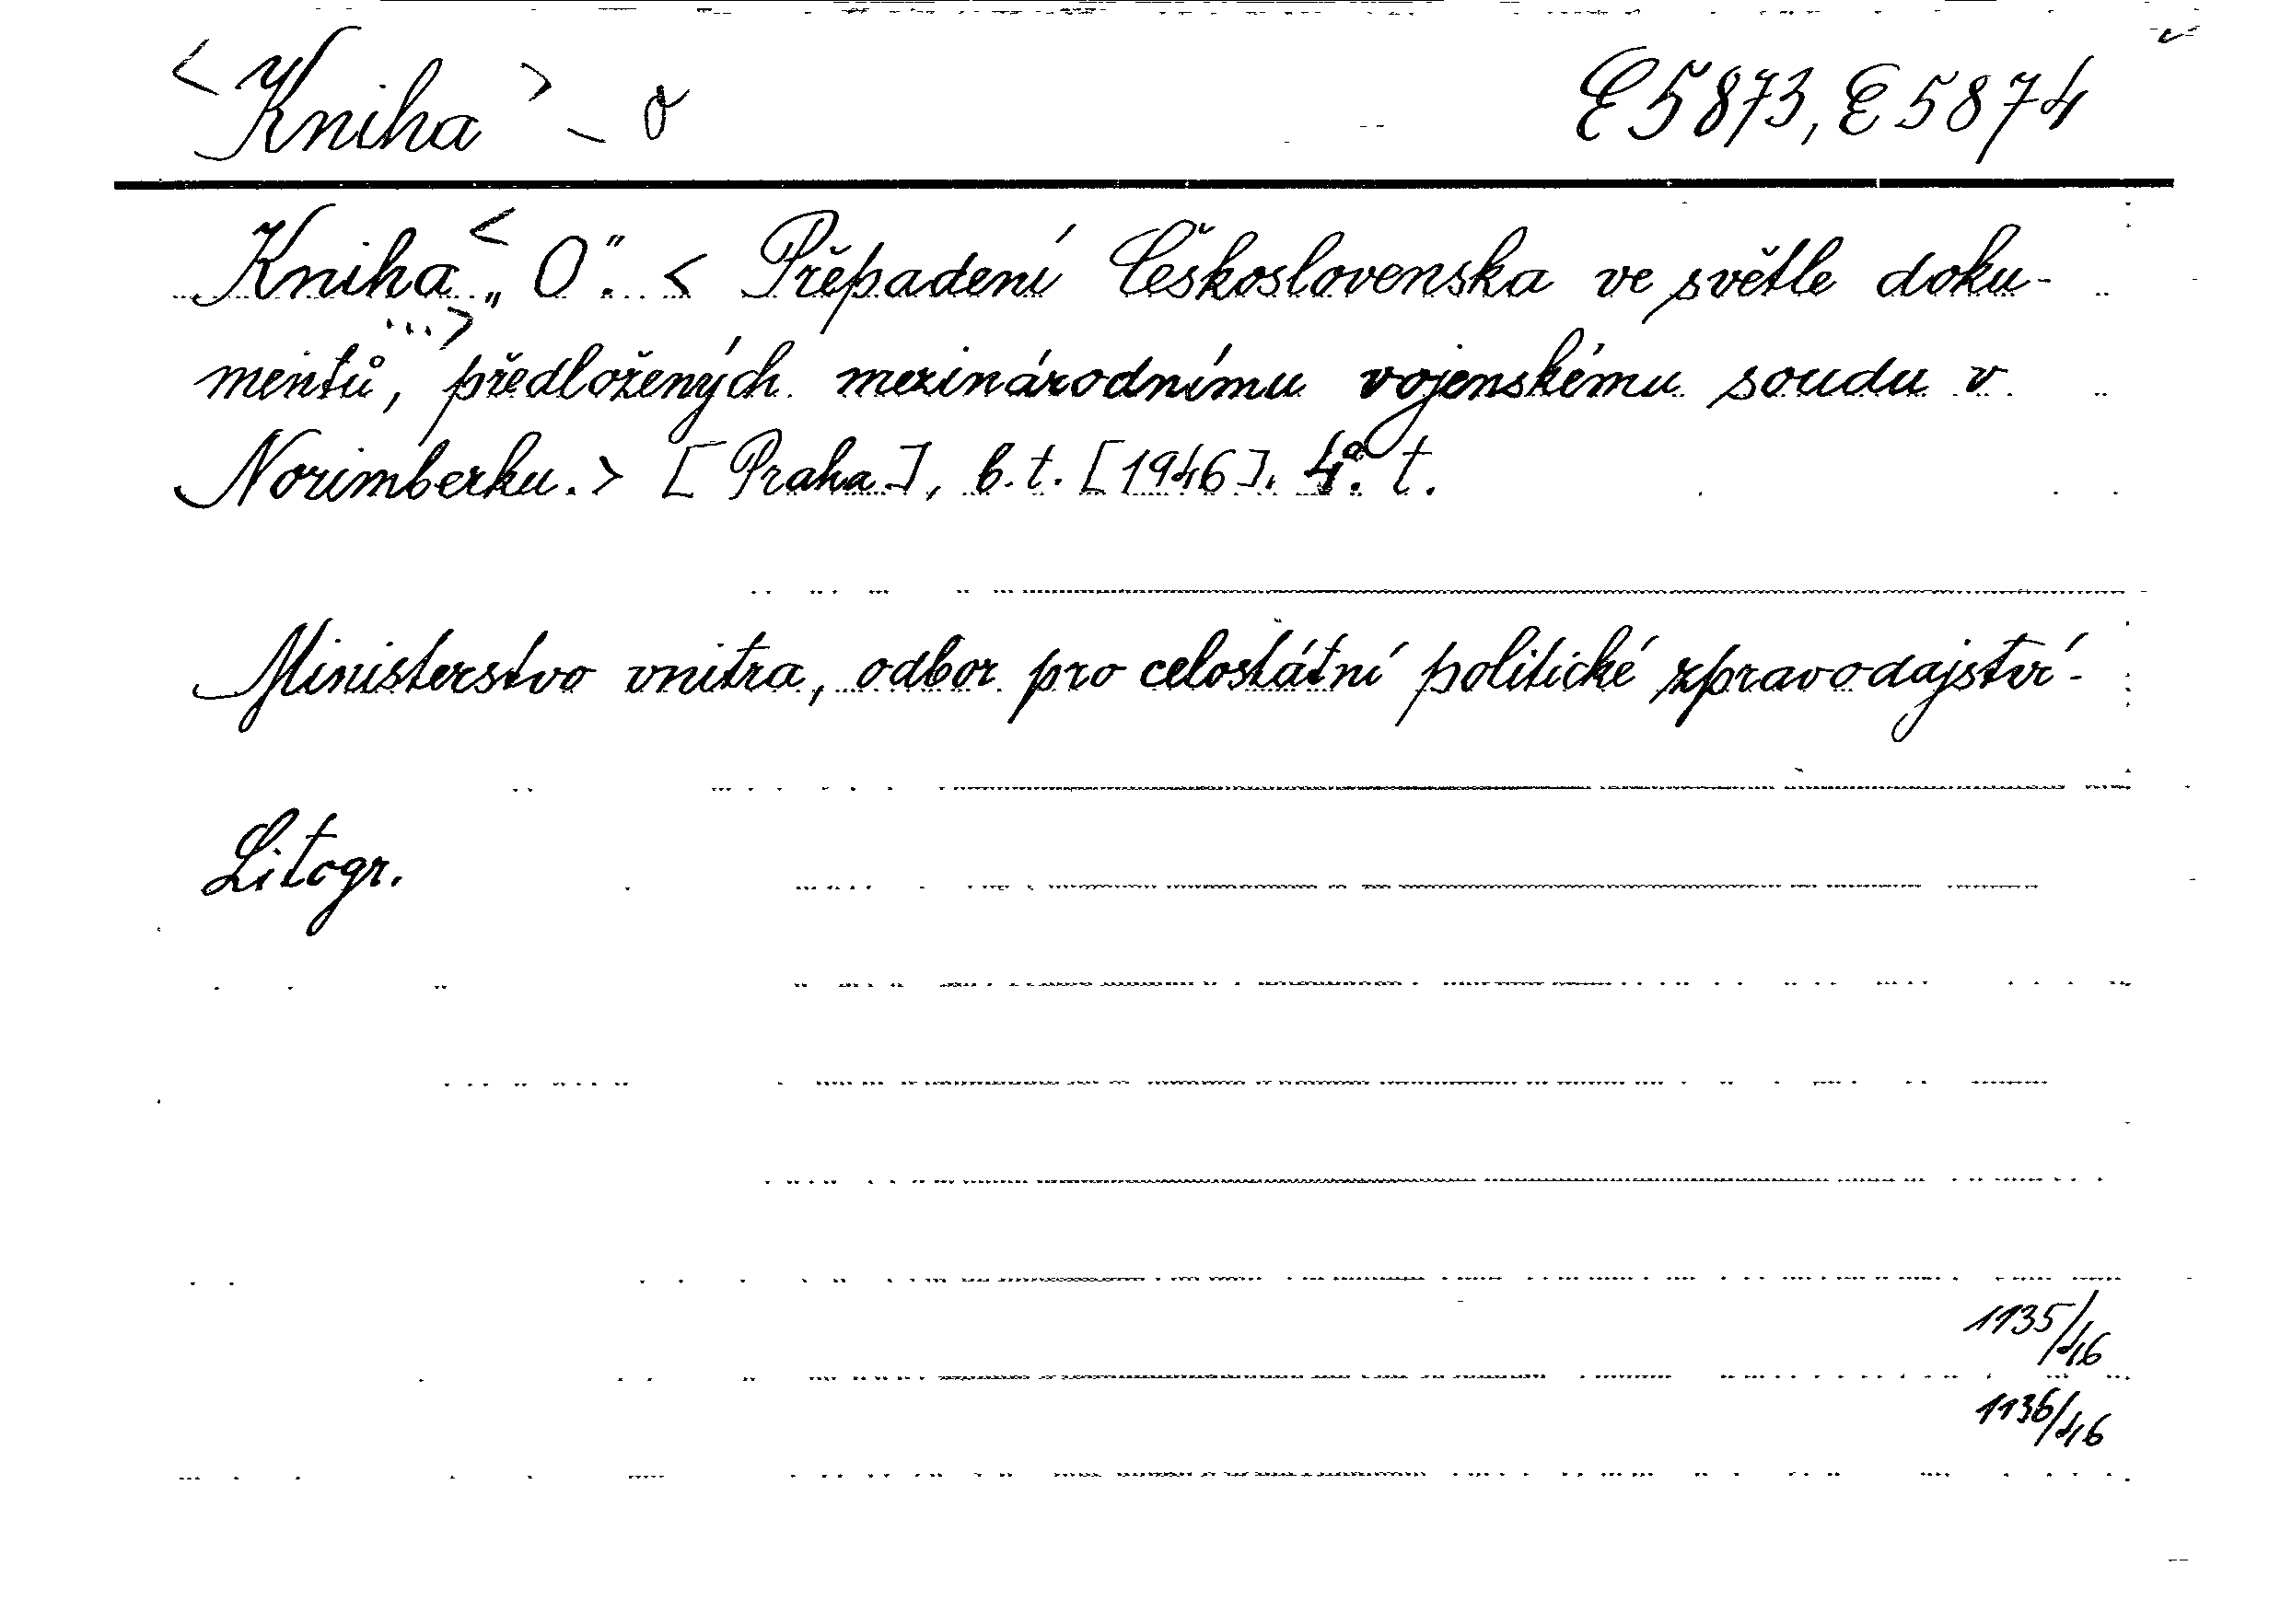 <Kniha> - o E 5873, E 5874
Kniha < „O“. < Přěpadení Československa ve světle doku-
...>
mentů, předložených mezinárodnímu vojenskému soudu v
Norimberku. > [Praha], b. t. [1946]. 4°. t.
Ministerstvo vnitra, odbor pro celostátní politické zpravodajství -
Litogr.
1135/46
1136/46